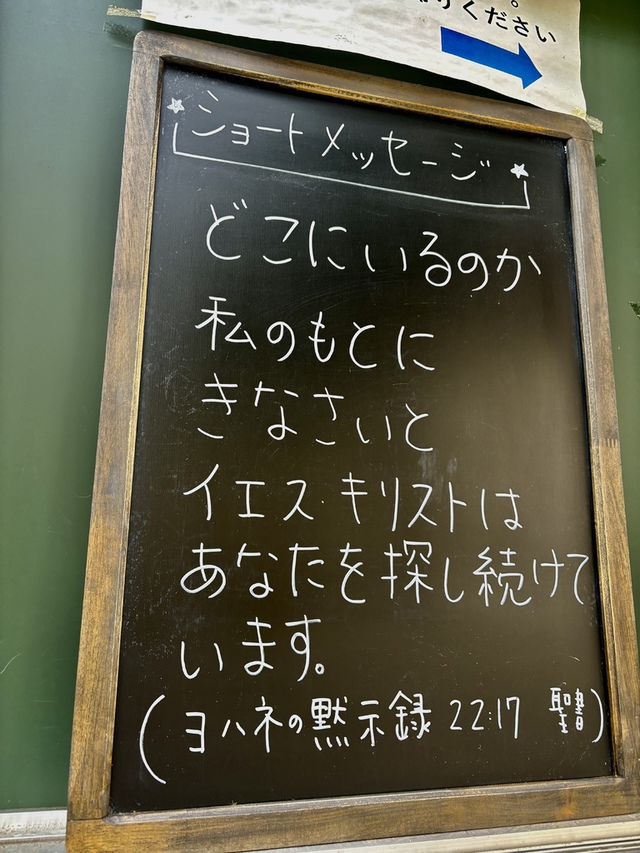 ください
ショートメッセージ
どこにいるのか
私のもとに
きなさいと
イエス・キリストは
あなたを探し続けて
います。
(ヨハネの黙示録 22:17 聖書)